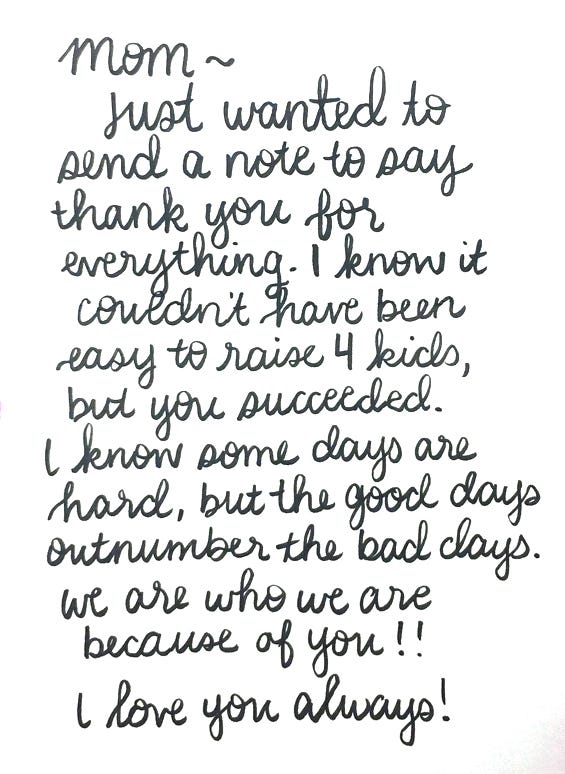 Mom ~
Just wanted to
send a note to say
thank you for
everything. I know it
couldn't have been
easy to raise 4 kids,
but you succeeded.
I know some days are
hard, but the good days
outnumber the bad days.
We are who we are
because of you!!
I love you always!